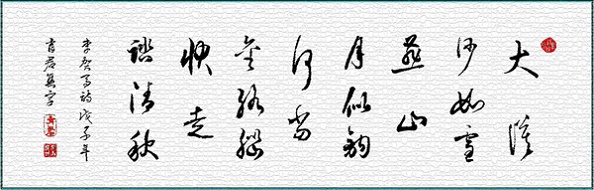 大漠
沙如雪
燕山
月似钩
何当
金络脑
快走
踏清秋
李贺马诗戊子年